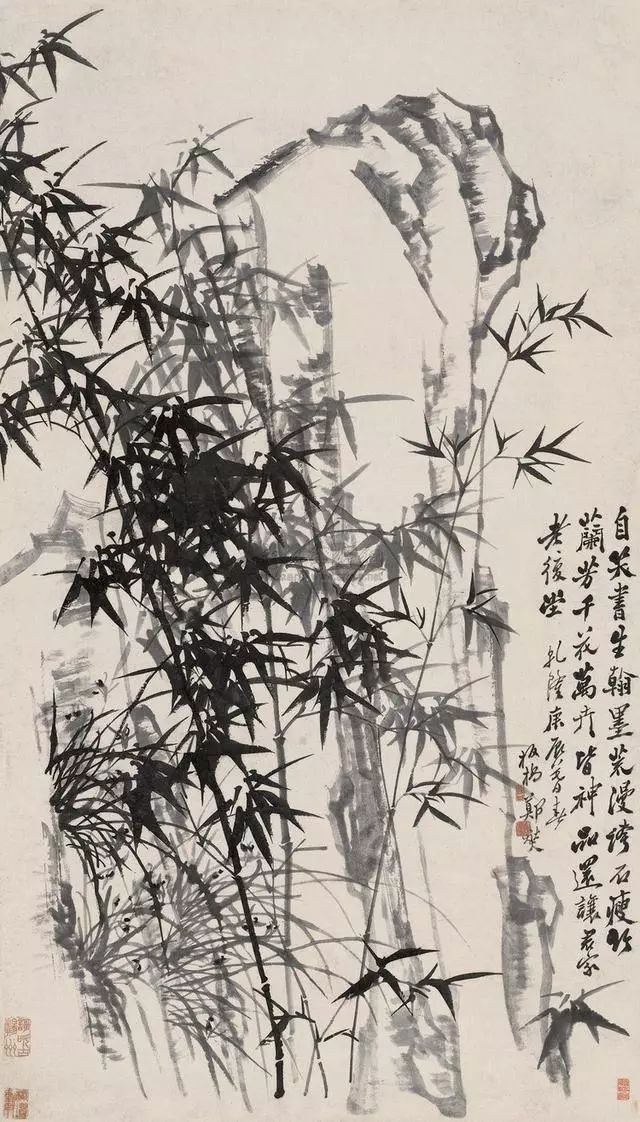 自笑書生翰墨荒漫誇石瘦竹
蘭芳千花萬卉皆神品還讓君家
老復堂 乾隆庚辰春
板橋鄭燮